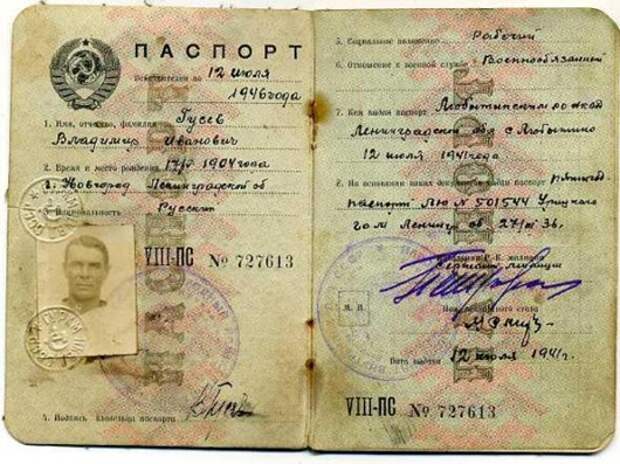 ПАСПОРТ
Действителен по 12 июля
1946 года
1. Имя, отчество, фамилия Гусев
Владимир Иванович
2. Время и место рождения 1904 года
г. Новгород Ленинградской об
3. Национальность
Русский
VIII-ПС № 727613
4. Подпись владельца паспорта
5. Социальное положение Рабочий
6. Отношение к военной службе Военнообязанный
7. Кем выдан паспорт Любытинским
Ленинградской обл с Любытино
12 июля 1941 года
8. На основании каких документов выдан паспорт
паспорта № 501544 Урицкого
Ленингр об 36.
Начальник Р.-К. милиции
М. П.
Нач. паспортного стола
Дата выдачи 12 июля 1941 г.
VIII-ПС № 727613